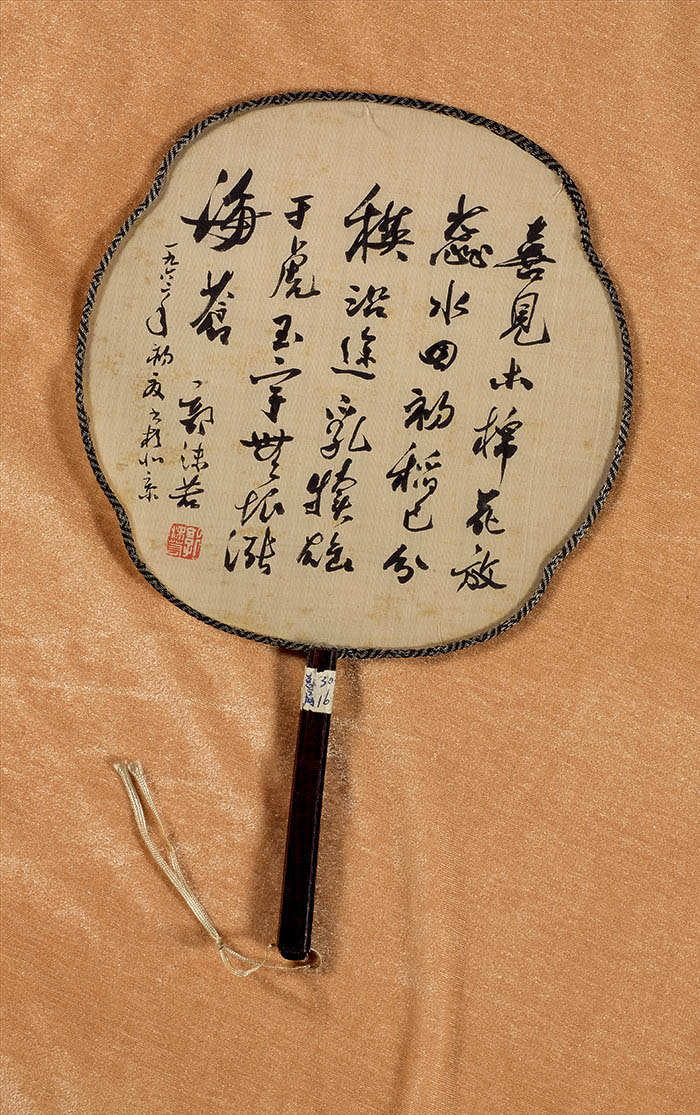 喜見木棉花放
蕊水田初稻已分
秧沿途乳犢雄
于虎玉宇無垠漲
海蒼
郭沫若
一九六二年初夏书於北京
30
16